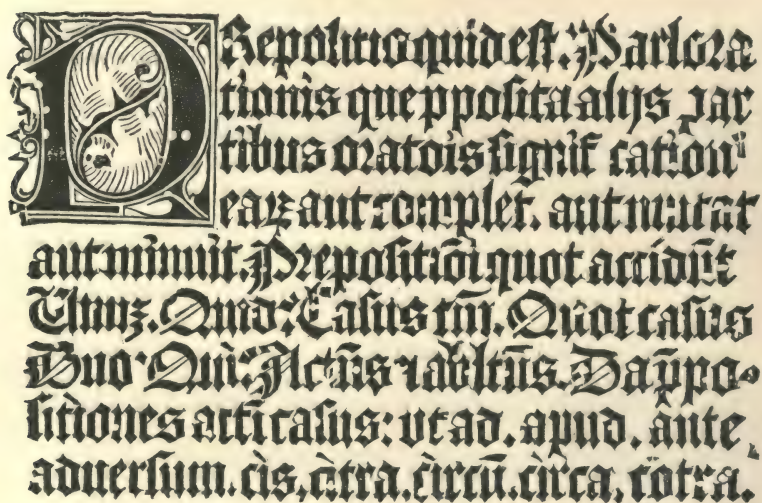 PRepositio quid est? Pars ora
tionis que pposita alijs par
tibus oratōis significationē
eaꝝ aut complet. aut mutat
aut minuit. Prepositiōi quot accidūt
Unuꝫ. Quid? Casus tm̄. Quot casus
Duo. Qui? Actūs ⁊ abltūs. Da p̄po-
sitiones acti casus: vt ad. apud. ante
aduersum. cis. citra. circū. circa. cōtra.